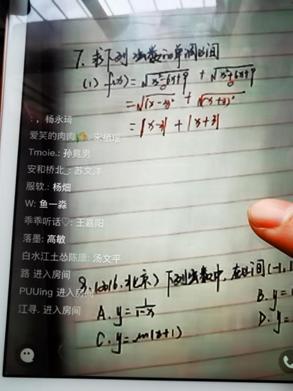 7. 求下列函数的单调区间
(1) f(x) = √x²-6x+9 + √x²+6x+9
= √(x-3)² + √(x+3)²
= |x-3| + |x+3|
：，杨永琦
爱笑的肉肉
Tmoie.：孙
安和桥北_：苏文洋
服软.：杨烟
W: 鱼一淼
乖乖听话♡: 王嘉阳
落墨: 高敏
白水江土怂陈康: 汤文平
路 进入房间
PUUing 进入房间
江寻. 进入房间
8. (2016.北京) 下列函数中, 在区间 (-1, 1
A. y = 1/1-x
B. y =
C. y = ln(x+1)
D. y =